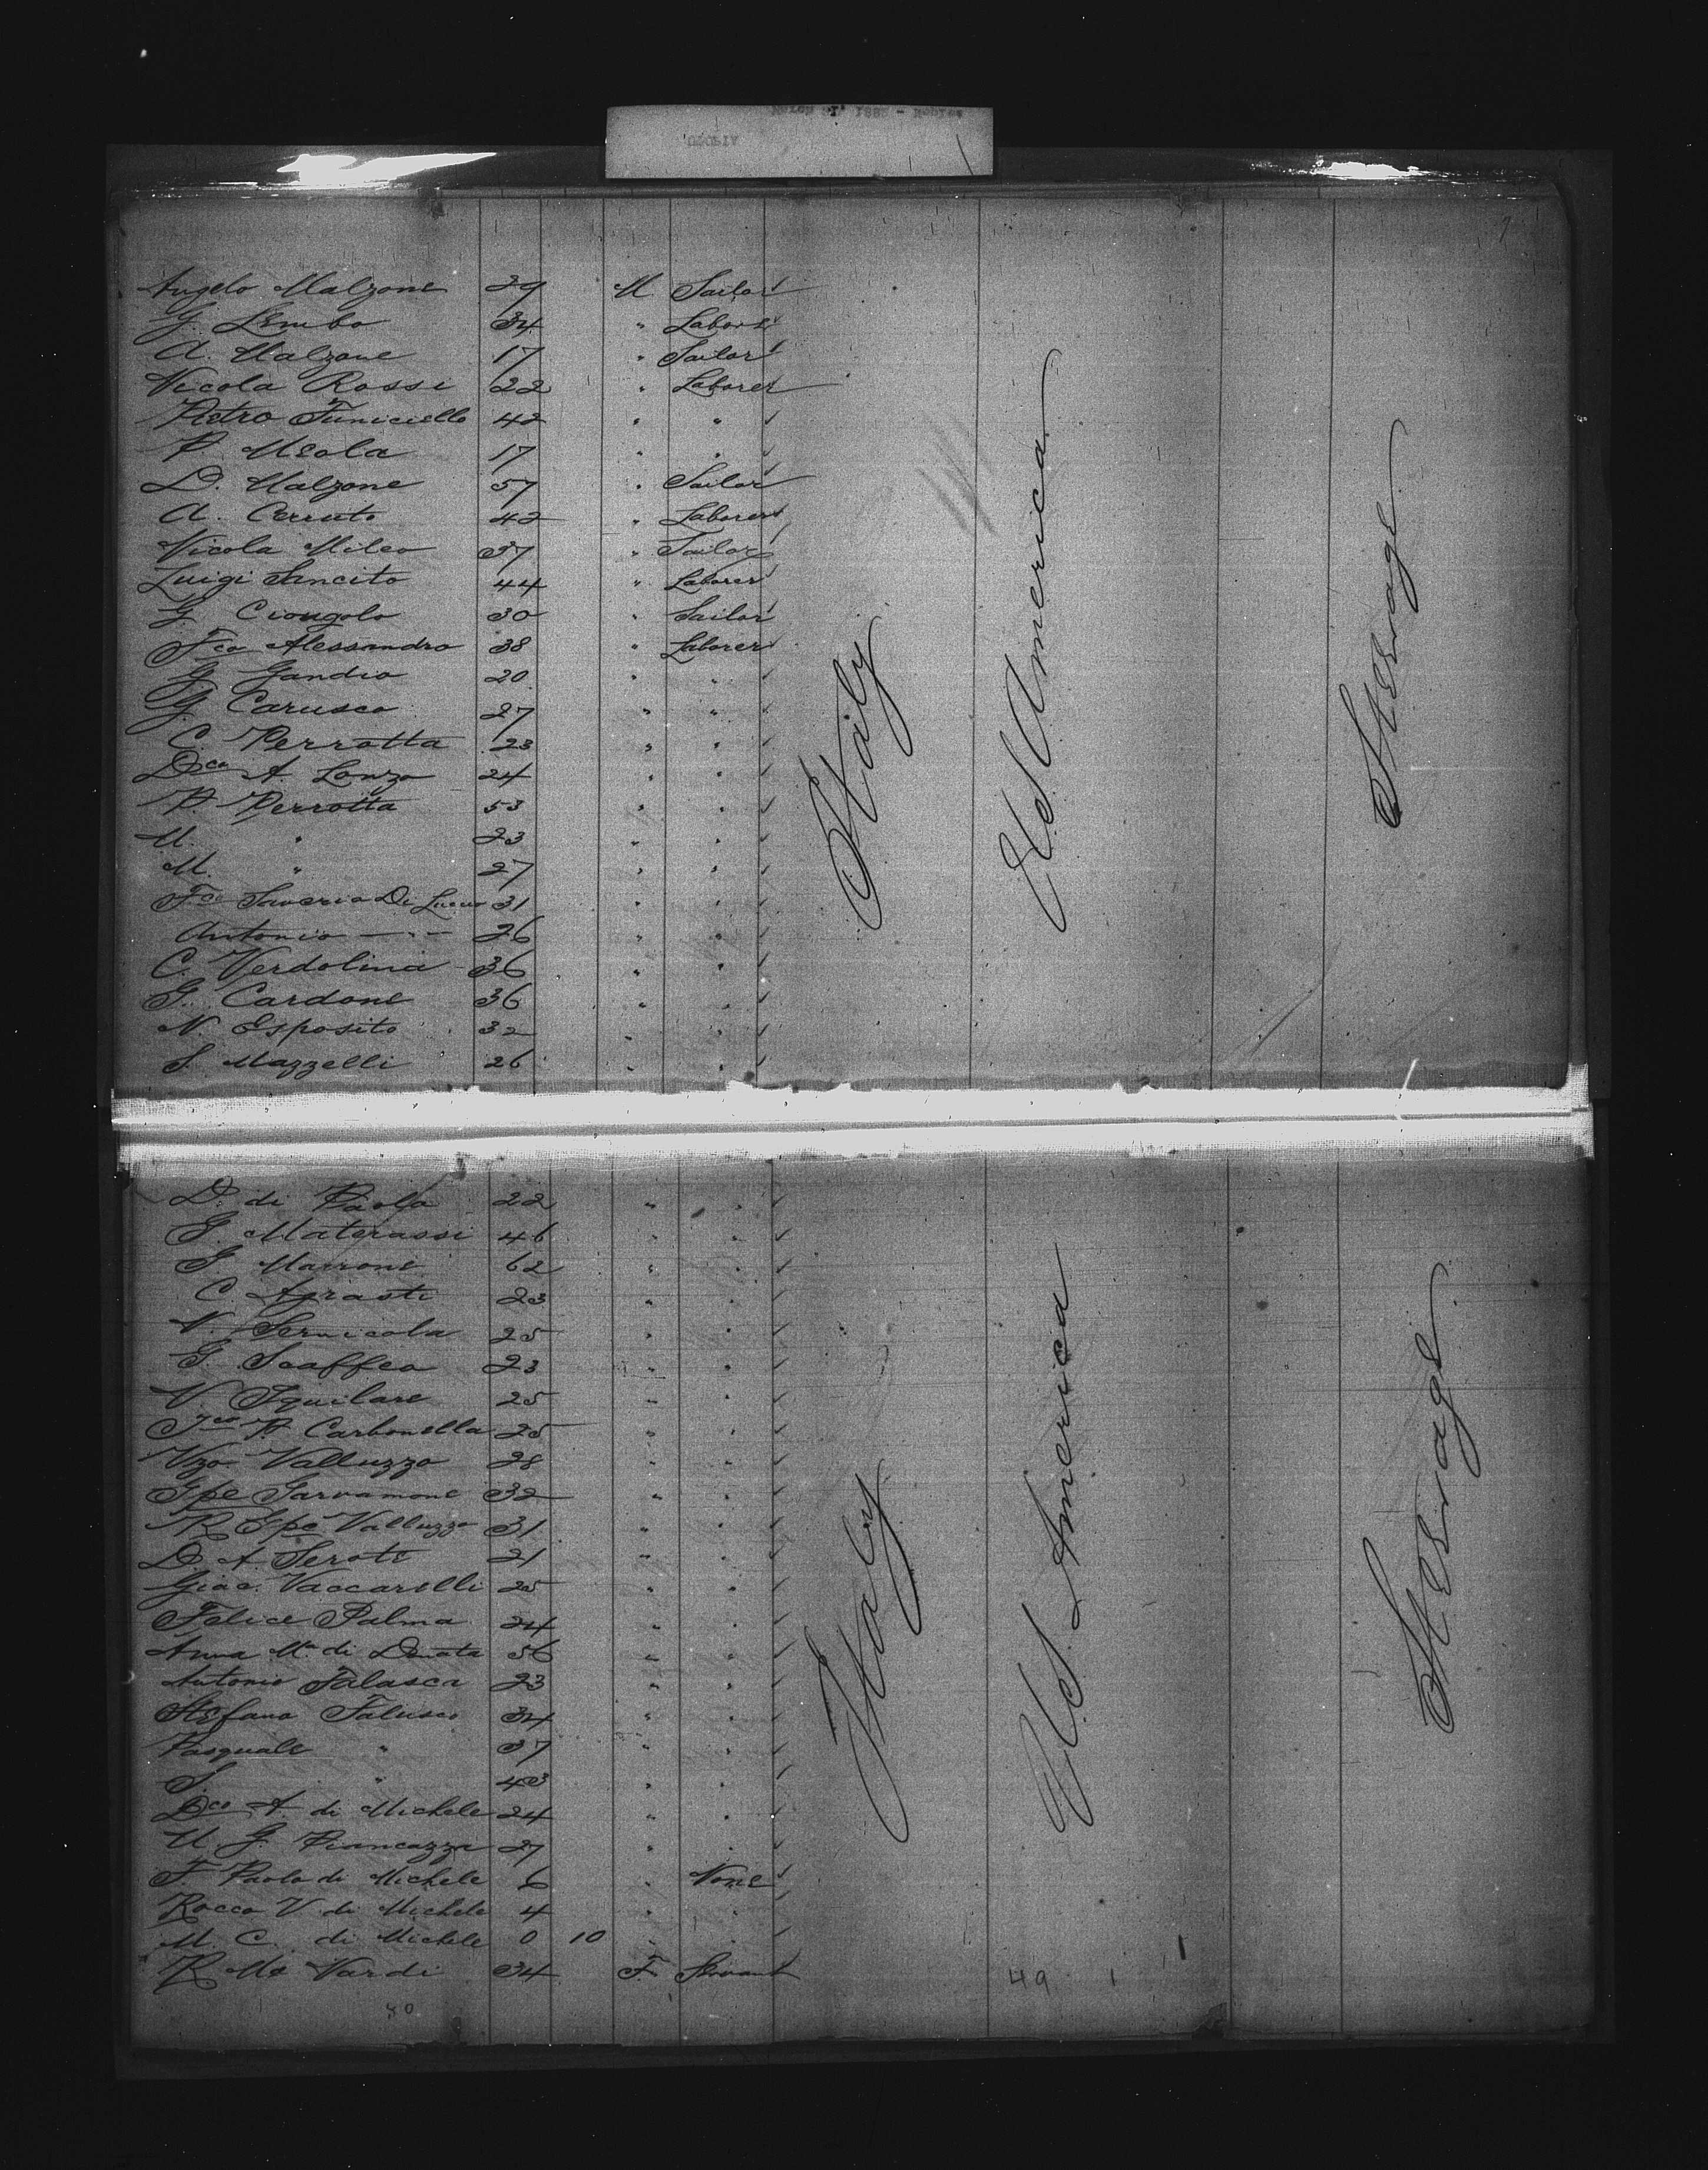 7
Angelo Malzone 29 M Sailor
G. Lembo 34 " Laborer
A. Malzone 17 " Sailor
Nicola Rossi 22 " Laborer
Pietro Funiciello 42 " "
P. Meola 17 " "
D. Malzone 57 " Sailor
A. Cerruto 42 " Laborer
Nicola Mileo 37 " Sailor
Luigi Sancito 44 " Laborer
G. Ciongolo 30 " Sailor
Fco Alessandro 38 " Laborer
G. Gandio 20 " "
G. Carusco 27 " "
C. Perrotta 23 " "
Dco A. Lonzo 24 " "
P. Perrotta 53 " "
M. " 23 " "
M. " 27 " "
Fco Saverio Di 31 " "
Antonio — " — 26 " "
C. Verdolina 36 " "
G. Cardone 36 " "
N. Esposito 32 " "
S. Mazzelli 26 " "
Italy
US America
Steerage
D. di Paola 22 " "
G. Materassi 46 " "
G. Marrone 62 " "
C. 23 " "
N. Sernicola 25 " "
G. Scaffeo 23 " "
V. Squilare 25 " "
P. Carbonella 25 " "
Vzo Valluzzo 28 " "
Gpe Sarvamone 32 " "
R. Gpe Valluzzo 31 " "
D. A. Serote 21 " "
Giac. Vaccarelli 25 " "
Felice Palma 24 " "
Anna Ma di Donata 56 " "
Antonio Falasca 23 " "
Stefano Falusco 34 " "
Pasquale " 37 " "
S. " 43 " "
Dco A. di Michele 24 " "
M. G. Piancazza 27 " "
F. Paolo di Michele 6 " None
Rocco V. di Michele 4 " "
M. C. di Michele 0 10 " "
R. Ma Vardi 34 F. Servant
Italy
US America
Steerage
49 1
50